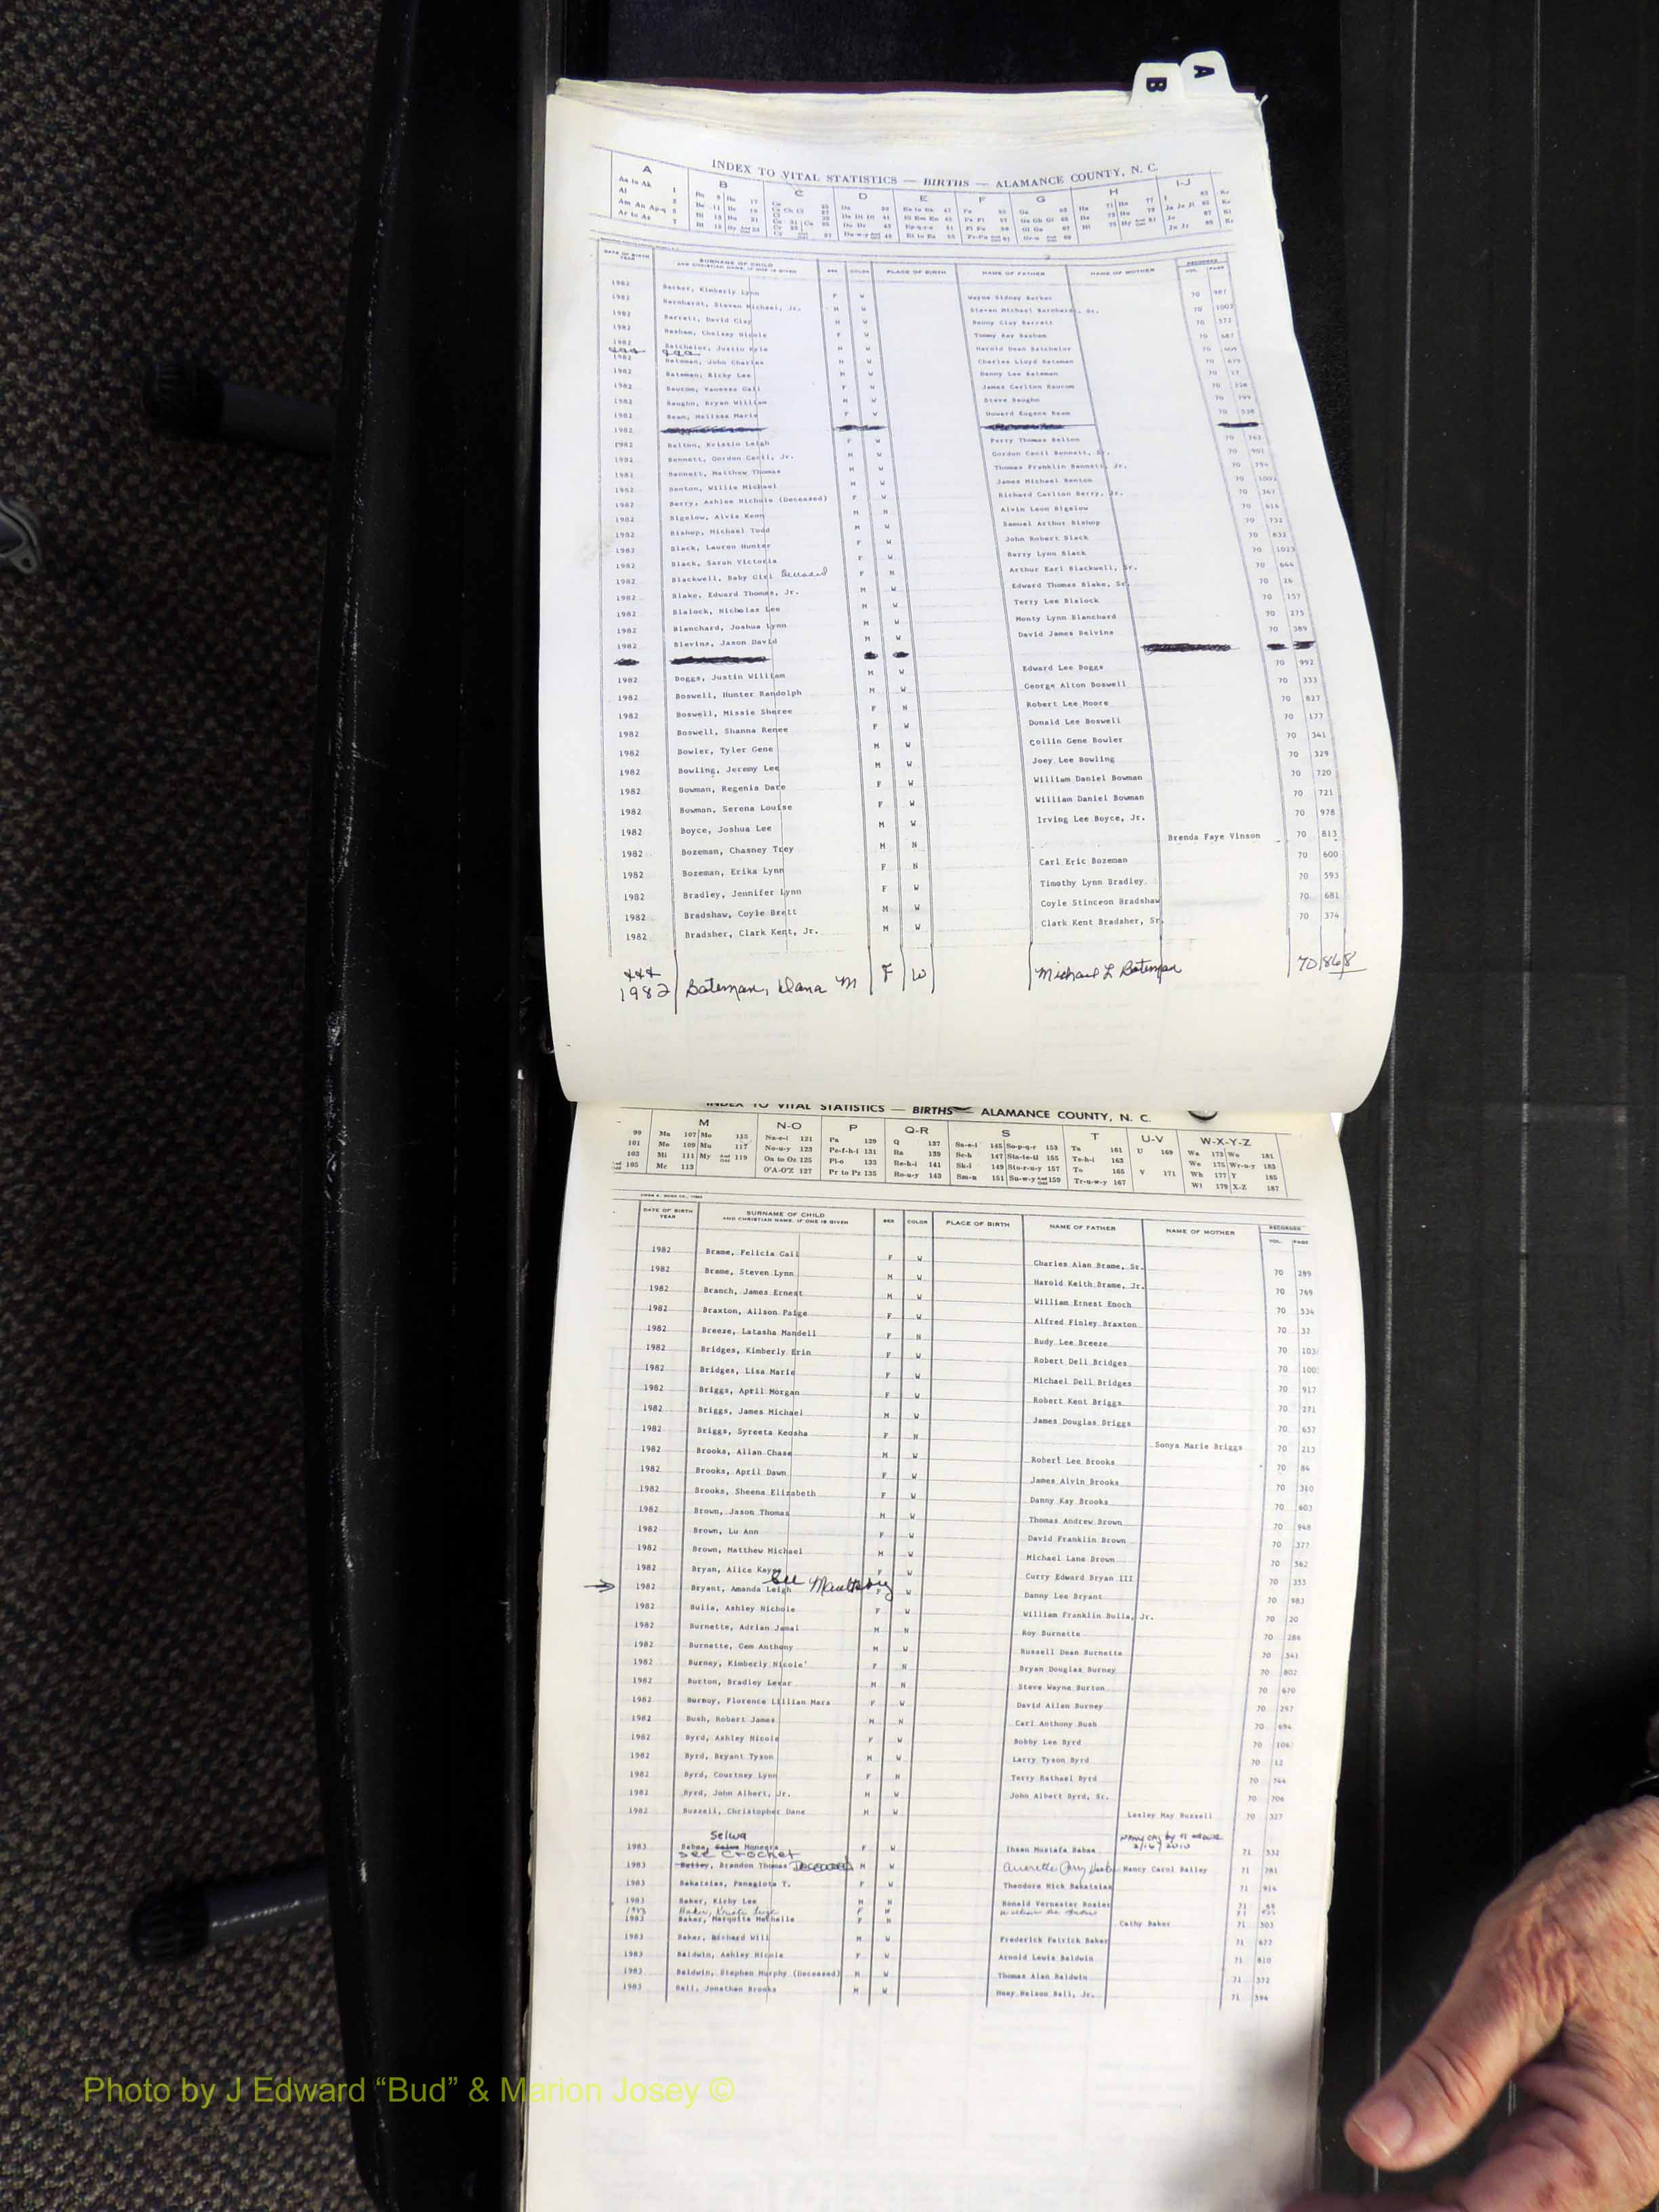 A
B
INDEX TO VITAL STATISTICS — BIRTHS — ALAMANCE COUNTY, N. C.
A B C D E F G H I-J
DATE OF BIRTH YEAR SURNAME OF CHILD AND CHRISTIAN NAME, IF ONE IS GIVEN SEX COLOR PLACE OF BIRTH NAME OF FATHER NAME OF MOTHER RECORDED VOL. PAGE
1982 Barker, Kimberly Lynn F W Wayne Sidney Barker 70 987
1982 Barnhardt, Steven Michael, Jr. M W Steven Michael Barnhardt, Sr. 70 1002
1982 Barrett, David Clay M W Benny Clay Barrett 70 572
1982 Basham, Chelsey Nicole F W Tommy Ray Basham 70 687
1982 Batchelor, Justin Kyle M W Harold Dean Batchelor 70
1982 Bateman, John Charles M W Charles Lloyd Bateman 70 479
1982 Bateman, Ricky Lee M W Danny Lee Bateman 70 17
1982 Baucom, Vanessa Gail F W James Carlton Baucom 70
1982 Baughn, Bryan William M W Steve Baughn 70 799
1982 Beam, Melissa Marie F W Howard Eugene Beam 70 538
1982
1982 Belton, Kristin Leigh F W Perry Thomas Belton 70 762
1982 Bennett, Gordon Cecil, Jr. M W Gordon Cecil Bennett, Sr. 70 901
1982 Bennett, Matthew Thomas M W Thomas Franklin Bennett, Jr. 70 794
1982 Benton, Willie Michael M W James Michael Benton 70 1001
1982 Berry, Ashlee Nichole (Deceased) F W Richard Carlton Berry, Jr. 70 367
1982 Bigelow, Alvis Kenn M N Alvin Leon Bigelow 70 616
1982 Bishop, Michael Todd M W Samuel Arthur Bishop 70 732
1982 Black, Lauren Hunter F W John Robert Black 70 832
1982 Black, Sarah Victoria F W Barry Lynn Black 70 1023
1982 Blackwell, Baby Girl Deceased F N Arthur Earl Blackwell, Sr. 70 644
1982 Blake, Edward Thomas, Jr. M W Edward Thomas Blake, Sr. 70 26
1982 Blalock, Nicholas Lee M W Terry Lee Blalock 70 157
1982 Blanchard, Joshua Lynn M W Monty Lynn Blanchard 70 275
1982 Blevins, Jason David M W David James Belvins 70 389
1982 Boggs, Justin William M W Edward Lee Boggs 70 992
1982 Boswell, Hunter Randolph M W George Alton Boswell 70 333
1982 Boswell, Missie Sheree F N Robert Lee Moore 70 827
1982 Boswell, Shanna Renee F W Donald Lee Boswell 70 177
1982 Bowler, Tyler Gene M W Collin Gene Bowler 70 341
1982 Bowling, Jeremy Lee M W Joey Lee Bowling 70 329
1982 Bowman, Regenia Dare F W William Daniel Bowman 70 720
1982 Bowman, Serena Louise F W William Daniel Bowman 70 721
1982 Boyce, Joshua Lee M W Irving Lee Boyce, Jr. 70 978
1982 Bozeman, Chasney Trey M N Brenda Faye Vinson 70 813
1982 Bozeman, Erika Lynn F N Carl Eric Bozeman 70 600
1982 Bradley, Jennifer Lynn F W Timothy Lynn Bradley 70 593
1982 Bradshaw, Coyle Brett M W Coyle Stinceon Bradshaw 70 681
1982 Bradsher, Clark Kent, Jr. M W Clark Kent Bradsher, Sr. 70 374
***
1982 Bateman, Dana M F W Michael L Bateman 70 868
INDEX TO VITAL STATISTICS — BIRTHS — ALAMANCE COUNTY, N. C.
M N-O P Q-R S T U-V W-X-Y-Z
99 Ma 107 Mo 115 Na-e-i 121 Pa 129 Q 137 Sa-e-i 145 So-p-q-r 153 Ta 161 U 169 Wa 173 Wo 181
101 Me 109 Mu 117 No-u-y 123 Pe-f-h-i 131 Ra 139 Sc-h 147 Sta-te-ti 155 Te-h-i 163 We 175 Wr-u-y 183
103 Mi 111 My And Odd 119 Oa to Oz 125 Pl-o 133 Re-h-i 141 Sk-l 149 Sto-r-u-y 157 To 165 V 171 Wh 177 Y 185
105 Mc 113 O'A-O'Z 127 Pr to Pz 135 Ro-u-y 143 Sm-n 151 Su-w-y And Odd 159 Tr-u-w-y 167 Wi 179 X-Z 187
DATE OF BIRTH YEAR SURNAME OF CHILD AND CHRISTIAN NAME, IF ONE IS GIVEN SEX COLOR PLACE OF BIRTH NAME OF FATHER NAME OF MOTHER RECORDED VOL. PAGE
1982 Brame, Felicia Gail F W Charles Alan Brame, Sr. 70 289
1982 Brame, Steven Lynn M W Harold Keith Brame, Jr. 70 769
1982 Branch, James Ernest M W William Ernest Enoch 70 534
1982 Braxton, Alison Paige F W Alfred Finley Braxton 70 37
1982 Breeze, Latasha Mandell F N Rudy Lee Breeze 70 103
1982 Bridges, Kimberly Erin F W Robert Dell Bridges 70 100
1982 Bridges, Lisa Marie F W Michael Dell Bridges 70 917
1982 Briggs, April Morgan F W Robert Kent Briggs 70 271
1982 Briggs, James Michael M W James Douglas Briggs 70 657
1982 Briggs, Syreeta Keosha F N Sonya Marie Briggs 70 213
1982 Brooks, Allan Chase M W Robert Lee Brooks 70 84
1982 Brooks, April Dawn F W James Alvin Brooks 70 310
1982 Brooks, Sheena Elizabeth F W Danny Kay Brooks 70 603
1982 Brown, Jason Thomas M W Thomas Andrew Brown 70 948
1982 Brown, Lu Ann F W David Franklin Brown 70 377
1982 Brown, Matthew Michael M W Michael Lane Brown 70 562
1982 Bryan, Alice Kaye F W Curry Edward Bryan III 70 353
1982 Bryant, Amanda Leigh See F W Danny Lee Bryant 70 983
1982 Bulla, Ashley Nichole F W William Franklin Bulla, Jr. 70 20
1982 Burnette, Adrian Jamal M N Roy Burnette 70 286
1982 Burnette, Gem Anthony M W Russell Dean Burnette 70 541
1982 Burney, Kimberly Nicole' F N Bryan Douglas Burney 70 802
1982 Burton, Bradley Levar M N Steve Wayne Burton 70 670
1982 Burnoy, Florence Lillian Mara F W David Allen Burney 70 297
1982 Bush, Robert James M N Carl Anthony Bush 70 694
1982 Byrd, Ashley Nicole F W Bobby Lee Byrd 70 106
1982 Byrd, Bryant Tyson M W Larry Tyson Byrd 70 12
1982 Byrd, Courtney Lynn F N Terry Rathael Byrd 70 744
1982 Byrd, John Albert, Jr. M W John Albert Byrd, Sr. 70 706
1982 Buzzell, Christopher Dane M W Lesley May Buzzell 70 327
Selwa
1983 Babaa, Monegra F W Ihsan Mustafa Babaa 71 532
See Crochet
1983 Bailey, Brandon Thomas Deceased M W Nancy Carol Bailey 71 281
1983 Bakatsias, Panagiota T. F W Theodore Nick Bakatsias 71 914
1983 Baker, Kirby Lee M N Ronald Vernester Rosier 71 68
1983 Baker, Kristi Leigh F W 71
1983 Baker, Marquita Mechelle F N Cathy Baker 71 303
1983 Baker, Richard Will M W Frederick Patrick Baker 71 677
1983 Baldwin, Ashley Nicole F W Arnold Lewis Baldwin 71 810
1983 Baldwin, Stephen Murphy (Deceased) M W Thomas Alan Baldwin 71 372
1983 Ball, Jonathan Brooks M W Huey Nelson Ball, Jr. 71 394
Photo by J Edward “Bud” & Marion Josey ©